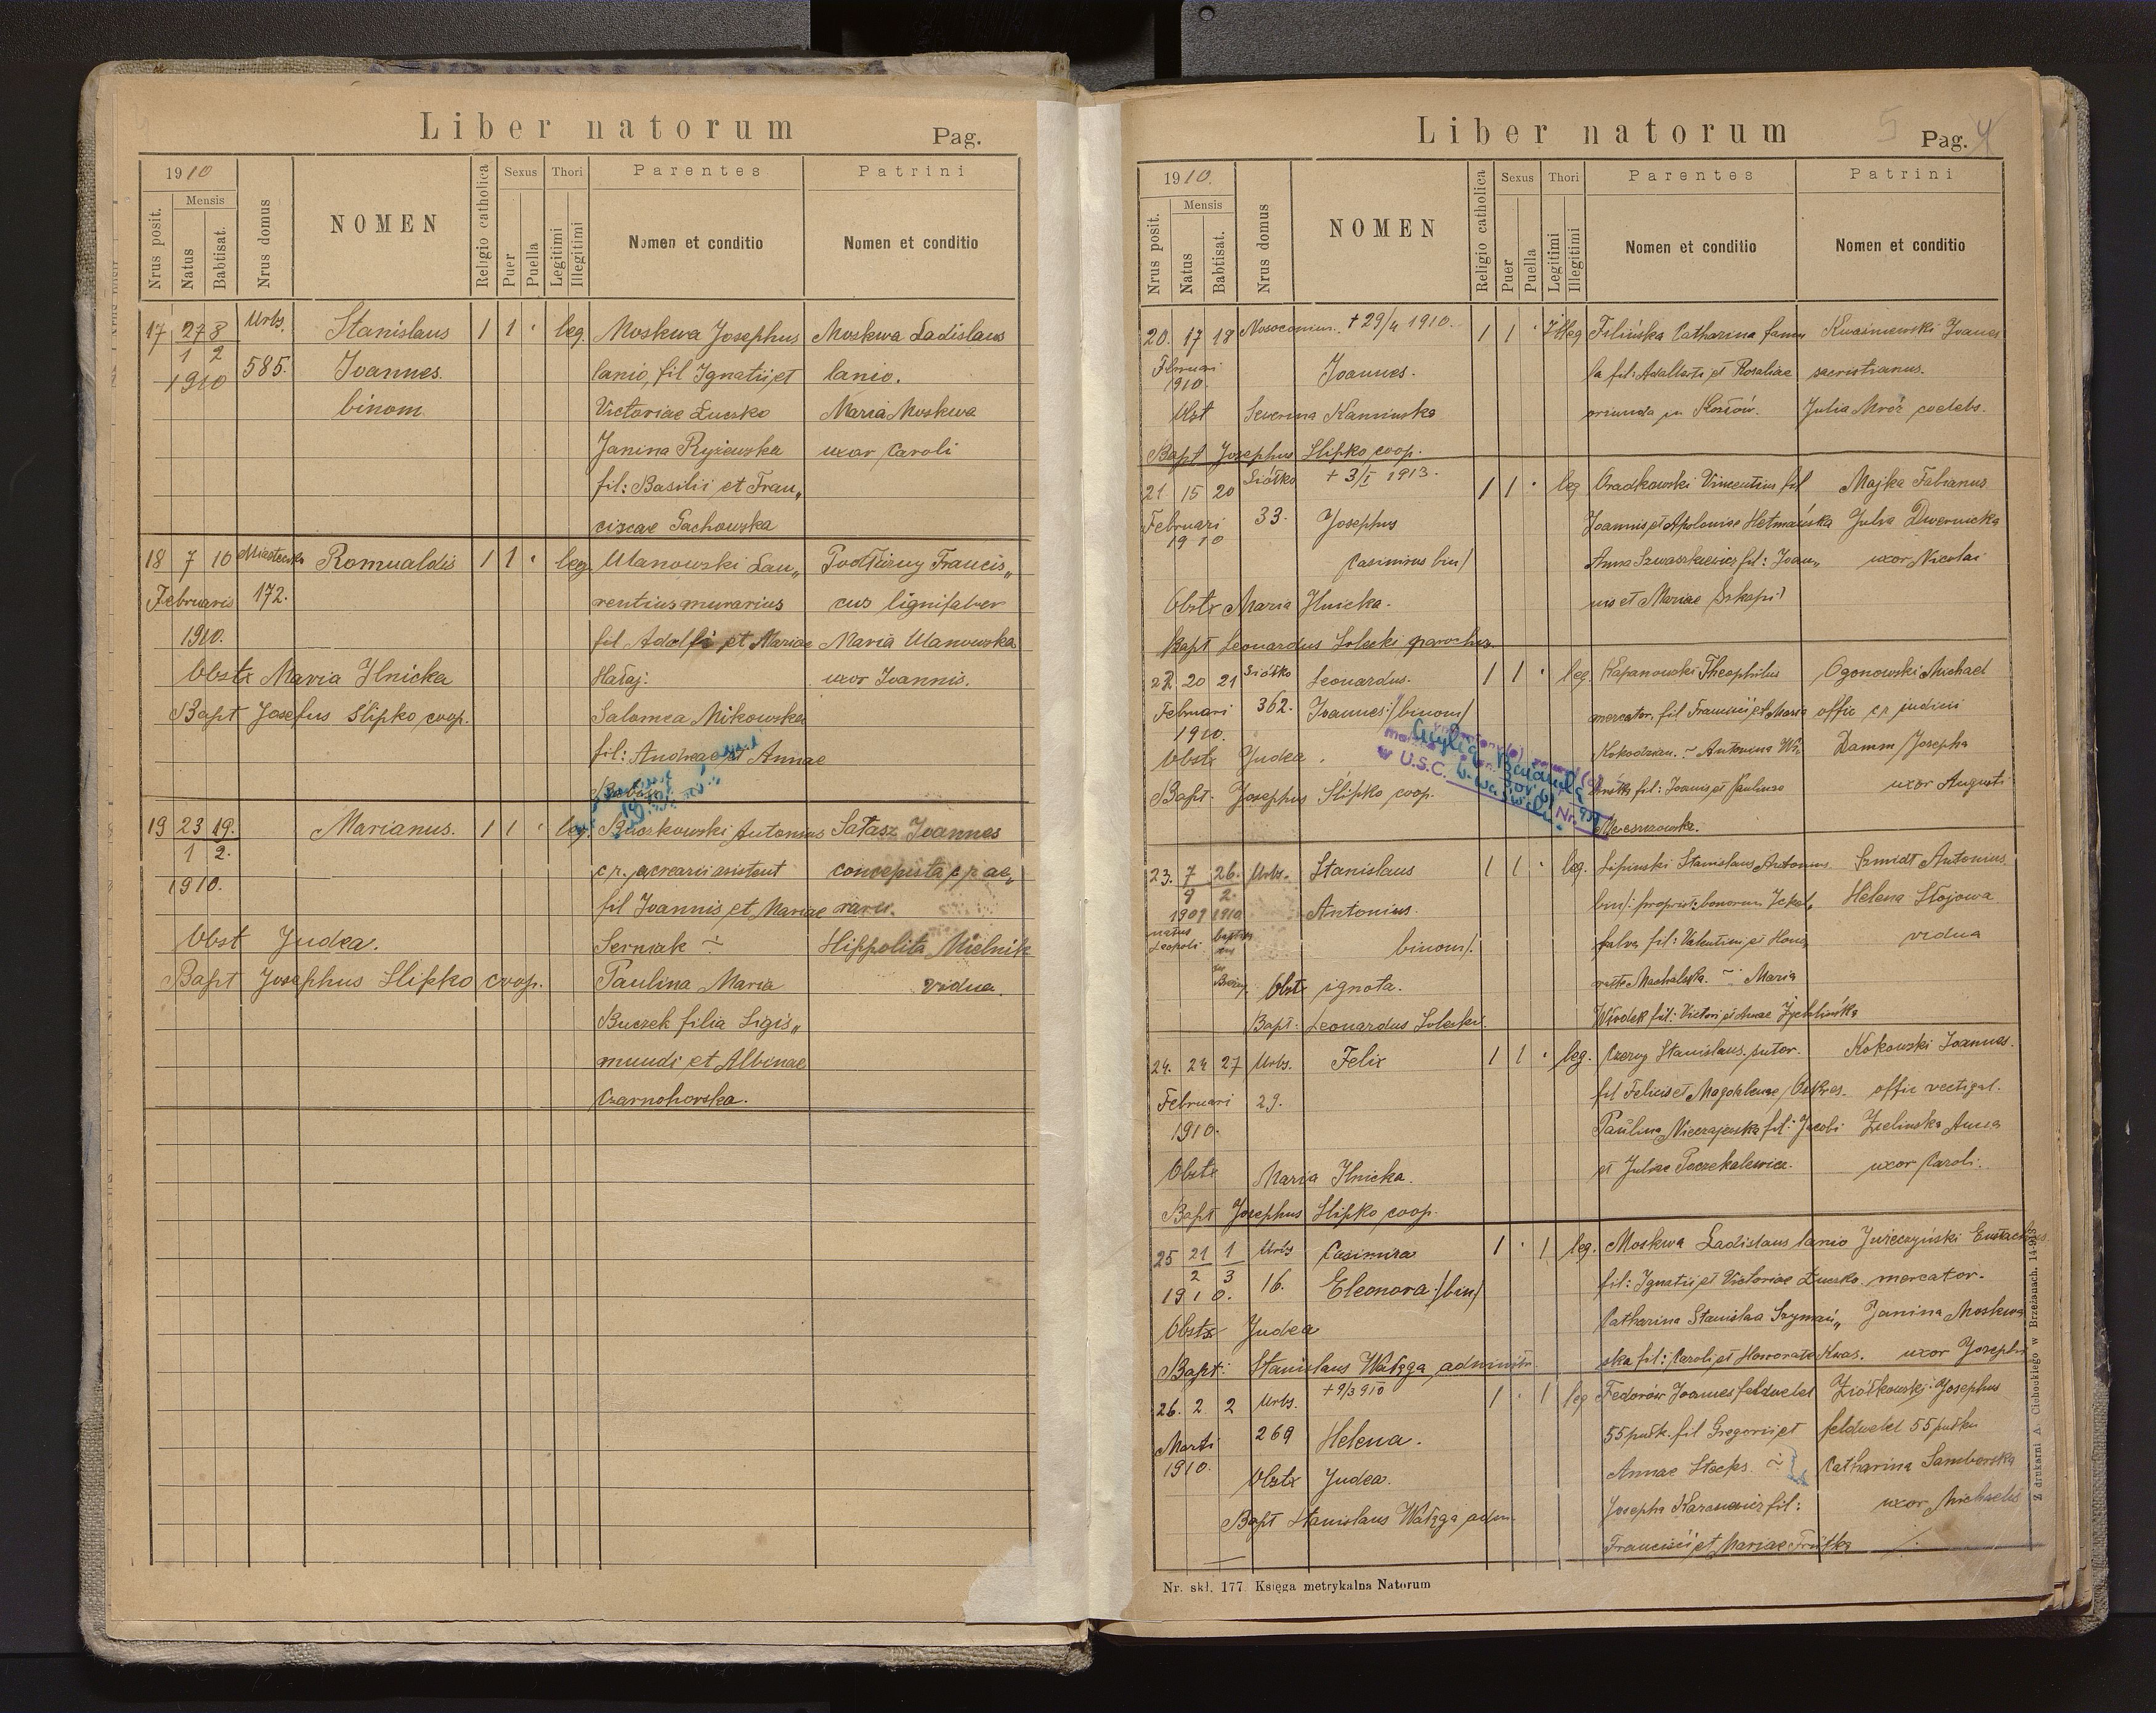 Liber natorum
Pag.
1910
Nrus posit.
Mensis
Natus
Babtisat.
Nrus domus
NOMEN
Religio catholica
Sexus
Puer
Puella
Thori
Legitimi
Illegitimi
Parentes
Nomen et conditio
Patrini
Nomen et conditio
17 27 8 Urbs. Stanislaus 1 1 · leg. Moskwa Josephus Moskwa Ladislaus
1 2
1910 585. Joannes. lanio, fil Ignatii et lanio.
binom. Victoriae Łucsko Maria Moskwa
Janina Ryżewska uxor Caroli
fil: Basilii et Fran„
ciscae Gachowska
18 7 10 Miasteczko Romualdis 1 1 · leg. Ulanowski Lau„ Podłużny Francis„
Februaris 172. rentius murarius cus lignifaber
1910. fil Adolfi et Mariae Maria Ulanowska
Obstx Maria Ilnicka Hałaj. uxor Joannis.
Bapt Josefus Slipko coop. Salomea Mikowska
fil: Andreae et Annae
19 23 19. Marianus. 1 1 · leg. Buczkowski Antonius Sałasz Joannes
1 2.
1910. c.r. aerearii asistent concepista c r ae„
fil Joannis et Mariae rarii.
Obst Judea. Serniak ~ Hippolita Mielnik
Bapt Josephus Slipko coop. Paulina Maria vidua.
Buczek filia Sigis„
mundi et Albinae
Czarnohorska.
Liber natorum
5 Pag. 4
1910.
Nrus posit.
Mensis
Natus
Babtisat.
Nrus domus
NOMEN
Religio catholica
Sexus
Puer
Puella
Thori
Legitimi
Illegitimi
Parentes
Nomen et conditio
Patrini
Nomen et conditio
20. 17 18 Nosocomium. + 29/4 1910. 1 1 · Illeg Filińska Catharina famu Kwaśniewski Joanes
Februari
1910. Joannes. la fil: Adalberti et Rosaliae sacristianus.
Obst Severina Kaminska oriunda in Julia Mróz coelebs.
Bapt Josephus Slipko coop.
21 15 20 Siółko + 3/I 1913. 1 1 · leg Vincentius fil Majka Fabianus
Februari 33. Josephus Joannis et Apoloniae Hetmańska Julia Dwernicka
1910
Casimirus bin/ Anna Szwaszkiewicz fil: Joan„ uxor Nicolai
Obstx Maria Ilnicka. nis et Mariae
Bapt Leonardus Solecki parochus
22 20 21 Siółko Leonardus. 1 1 · leg. Kapanowski Theophilus Ogonowski Michael
Februari 362. Joannes /binom/ mercator, fil Francisci et Maria offic c r judicii
1910.
Obstx Judea. ~ Antonina Damm Josepha
Bapt. Josephus Slipko coop. fil: Joannis et Paulinae uxor Augusti
w U.S.C. Nr.
23. 7 26. Urbs. Stanislaus 1 1 · leg. Lipinski Stanislaus Antonius Szmidt Antonius
9 2.
1909 1910 Antonius. bin/: propriet: bonorum Helena Stojowa
natus Leopoli
binom/. fil: Valentini et Hono vidua
Obstx ignota. ~ Maria
Bapt: Leonardus Solecki. Włodek fil: Victori et Annae Żychlińska
24. 24 27 Urbs. Felix 1 1 · leg. Czerny Stanislaus sutor. Kokowski Joannes.
Februari 29. fil Felicis et Magdalenae offic vectigal.
1910. Paulina fil: Jacobi Zielinska Anna
Obstx Maria Ilnicka. et Juliae uxor Caroli.
Bapt Josephus Slipko coop.
25 21 1 Urbs Casimira 1 · 1 leg. Moskwa Ladislaus lanio Jużeczyński Eustachius
2 3
1910. 16. Eleonora /bin/ fil: Ignatii et Victoriae Łucsko. mercator.
Obstx Judea Catharina Stanislaa Szymań„ Janina Moskwa
Bapt: Stanislaus Wałęga administr. ska fil: Caroli et Honorata Kwas. uxor Josephi
26. 2 2 Urbs. + 9/3 910 1 · 1 leg Fedorów Joannes feldwebel Ziółkowski Josephus
Marti 269 Helena. 55 pułk. fil Gregorii et feldwebel 55 pułku
1910. Obstx Judea. Annae ~ Catharina Samborska
Bapt Stanislaus Wałęga adm. Josepha Karasiewicz fil: uxor Michaelis
Francisci et Mariae
Nr. skł. 177 Księga metrykalna Natorum
Z drukarni A. Cichockiego w Brzeżanach. 14-908